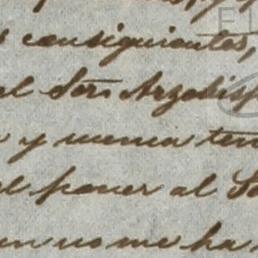 consiguientes,
el Sor. Arzobisp
y nunca ten
el poner al
no me ha